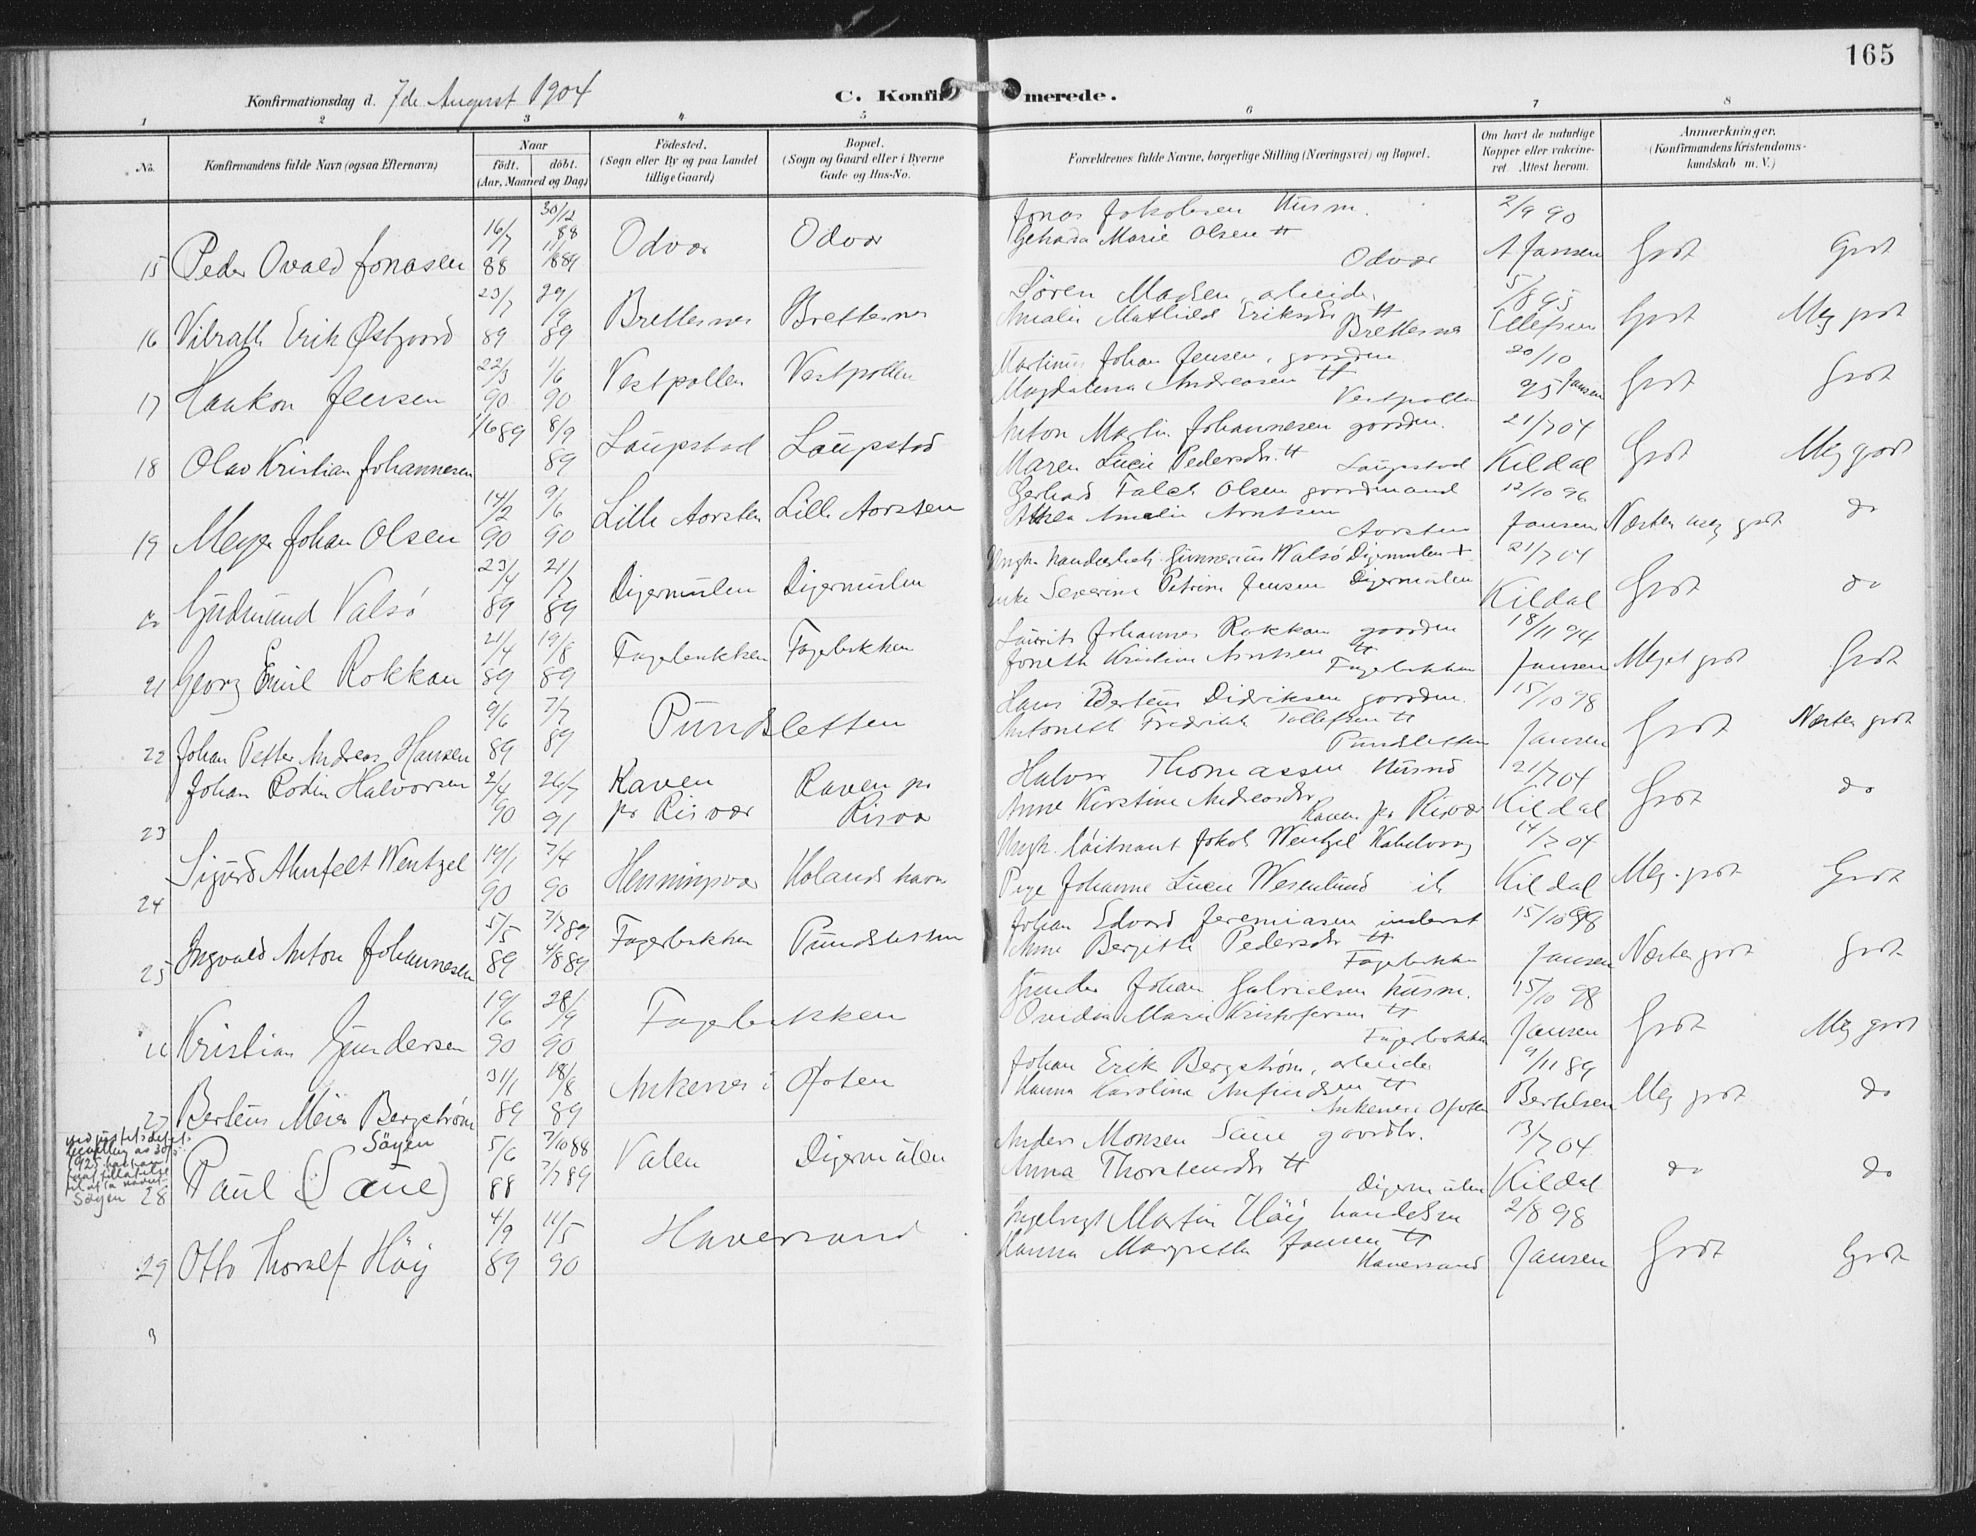 165
Konfirmationsdag d. 7de August 1904
C. Konfirmerede.
1 2 3 4 5 6 7 8
No.
Konfirmandens fulde Navn (ogsaa Efternavn)
Naar
født. døbt.
(Aar, Maaned og Dag)
Fødested.
(Sogn eller By og paa Landet
tillige Gaard)
Bopæl.
(Sogn og Gaard eller i Byerne
Gade og Hus-No.
Forældrenes fulde Navne, borgerlige Stilling (Næringsvei) og Bopæl.
Om havt de naturlige
Kopper eller vakcine-
ret. Attest herom.
Anmærkninger.
(Konfirmandens Kristendoms-
kundskab m. V.)
Jonas Jakobsen Husm. 2/9 90
16/7 30/12 88 Marie Olsen
15 Peder Jonasen 88 11/7 1889 Odvær Odvær Odvær A Jansen Godt Godt
23/7 29/9 Søren Madsen, arbeider 5/8 95
Amalie Mathilde Eriksdr
16 Vilrath Erik Østgaard 89 89 Brettesnes Brettesnes Brettesnes Ellefsen Godt Meg godt
22/3 1/6 Martinus Johan Jensen, gaardm. 20/10
Magdalena Andreasen
17 Haakon Jensen 90 90 Vestpollen Vestpollen Vestpollen 95 Jansen Godt Godt
1/6 89 8/9 Anton Martin Johannesen gaardm. 21/7 04
18 Olav Kristian Johannesen 89 Laupstad Laupstad Maren Lucie Pedersdr. Laupstad Kildal Godt Meg godt
14/2 9/6 Gerhard Falck Olsen gaardmand 12/10 96
Amalie Arntsen
19 Meyer Johan Olsen 90 90 Lille Aorsten Lille Aorsten Aorsten Jansen Næsten meg godt do
23/4 21/7 Ungk. Gunnerius Walsö Digermulen + 21/7 04
Severine Petrine Jensen Digermulen
20 Gudmund Valsö 89 89 Digermulen Digermulen Kildal Godt do
21/4 19/8 Laurits Johannes Rokkan gaardm 18/11 94
Joneth Kristine Arntsen
21 Georg Emil Rokkan 89 89 Fagerbukken Fagerbukken Fagerbukken Jansen Meget godt Godt
9/6 7/7 Hans Berteus Didriksen gaardm. 15/10 98
Fredrikke Tollefsen
22 Johan Petter Andreas Hansen 89 89 Pundsletten Pundsletten Jansen Godt Næsten godt
Johan Rodin Halvorsen 2/4 26/7 Raven Raven pr Halvor Thomassen Husmd 21/7 04
23 90 91 pr Risvær Risvær Anne Kirstine Andreasdr Raven pr Risvær Kildal Godt do
Ungk. löitnant Jakob Wentzel Kabelvaag 14/7 04
Sigurd Wentzel 19/1 7/4
24 90 90 Henningsvær Holandshavn Pige Johanne Lucie Wesenlund Kildal Meg. godt Godt
5/5 7/7 89 Johan Edvard Jeremiasen inderst 15/10 98
Anne Bergith Pedersdr
25 Ingvald Anton Johannesen 89 4/8 89 Fagerbukken Pundsletten Fagerbukken Jansen Næsten godt Godt
19/6 28/9 Gunder Johan Gabrielsen husm. 15/10 98
Ovidia Marie Kristofersen
Kristian Gundersen 90 90 Fagerbukken Fagerbukken Jansen Godt Meg godt
31/1 18/8 Johan Erik Bergstrøm, arbeider 9/11 89
Hanna Karoline Anfindsen
27 Berteus Meier Bergstrøm 89 89 Ankenes i Ofoten Ankenes i Ofoten Bertelsen Meg godt do
ved justitsdepts
bevilling av 30/5
1925 hat han
faat tilladelse
til at ta navnet
Söyen
Söyen 5/6 7/10 88 Anders Monsen Saue gaardbr. 13/7 04
28 Paul (Saue) 88 7/7 89 Valen Digermulen Anna Thorstensdr Digermulen Kildal do do
4/9 11/5 Martin Höij handelsm 2/8 98
Hanna Margretha Jansen
29 Otto Thoralf Höij 89 90 Haversand Haversand Jansen Godt Godt
3